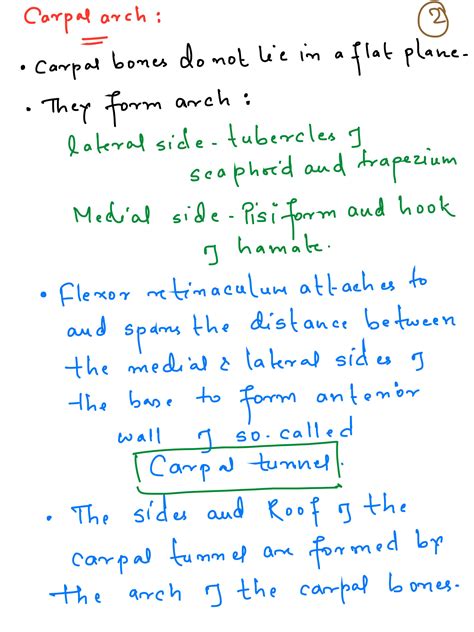 Carpal arch :
2
• Carpal bones do not lie in a flat plane.
• They form arch :
lateral side - tubercles of
scaphoid and trapezium
Medial side - Pisiform and hook
of hamate.
• Flexor retinaculum attaches to
and spans the distance between
the medial & lateral sides of
the base to form anterior
wall of so-called
Carpal tunnel.
• The sides and Roof of the
carpal tunnel are formed by
the arch of the carpal bones.